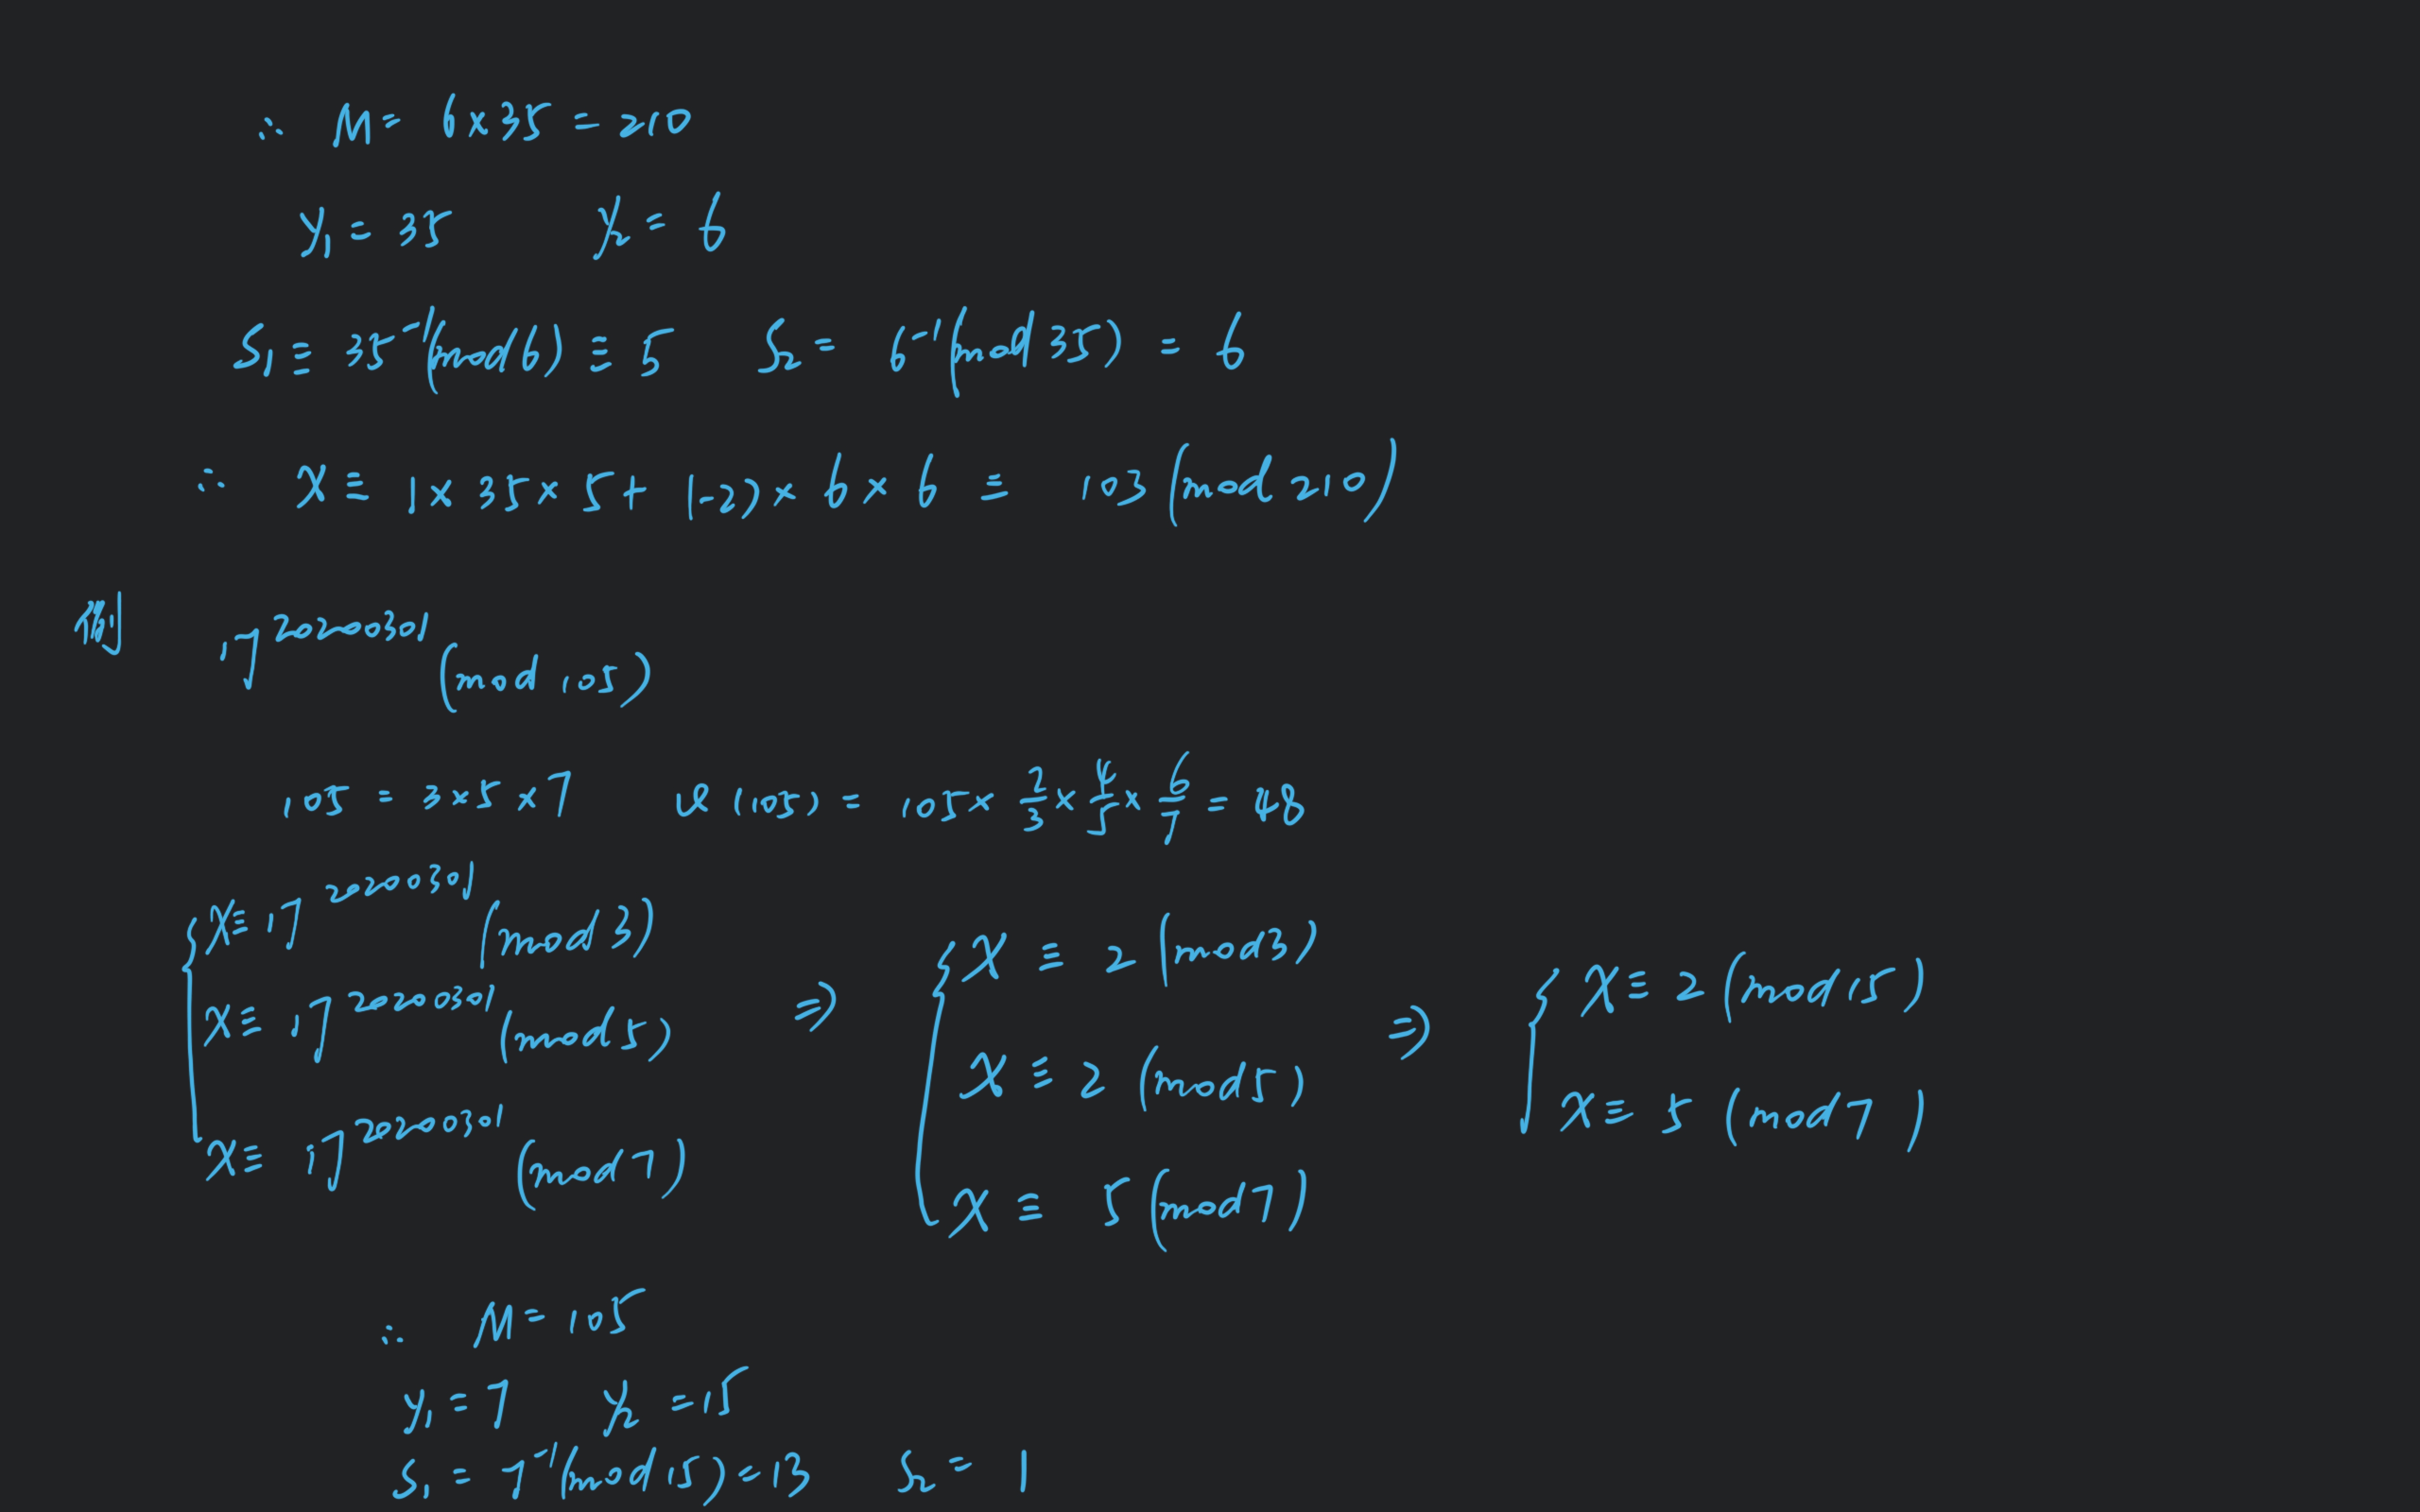 ∴ M = 6×35 = 210
y₁ = 35 y₂ = 6
S₁ ≡ 35⁻¹(mod 6) ≡ 5 S₂ = 6⁻¹(mod 35) = 6
∴ x ≡ 1×35×5+ (-2)×6×6 ≡ 103 (mod 210)
例 17²⁰²⁰⁰³⁰¹ (mod 105)
105 = 3×5×7 φ(105) = 105× 2/3 × 4/5 × 6/7 = 48
{ x ≡ 17²⁰²⁰⁰³⁰¹ (mod 3)
x ≡ 17²⁰²⁰⁰³⁰¹ (mod 5)
x ≡ 17²⁰²⁰⁰³⁰¹ (mod 7)
⇒ { x ≡ 2 (mod 3)
x ≡ 2 (mod 5)
x ≡ 5 (mod 7)
⇒ { x ≡ 2 (mod 15)
x ≡ 5 (mod 7)
∴ M = 105
y₁ = 7 y₂ = 15
S₁ = 7⁻¹(mod 15) = 13 S₂ = 1